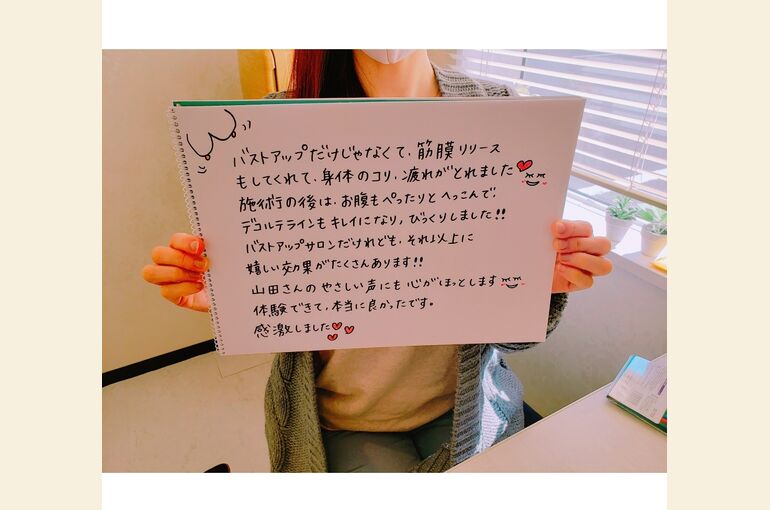 バストアップだけじゃなくて、筋膜リリース
もしてくれて、身体のコリ、疲れがとれました
施術の後は、お腹もぺったりとへっこんで、
デコルテラインもキレイになり、びっくりしました!!
バストアップサロンだけれども、それ以上に
嬉しい効果がたくさんあります!!
山田さんのやさしい声にも心がほっとします
体験できて、本当に良かったです。
感激しました